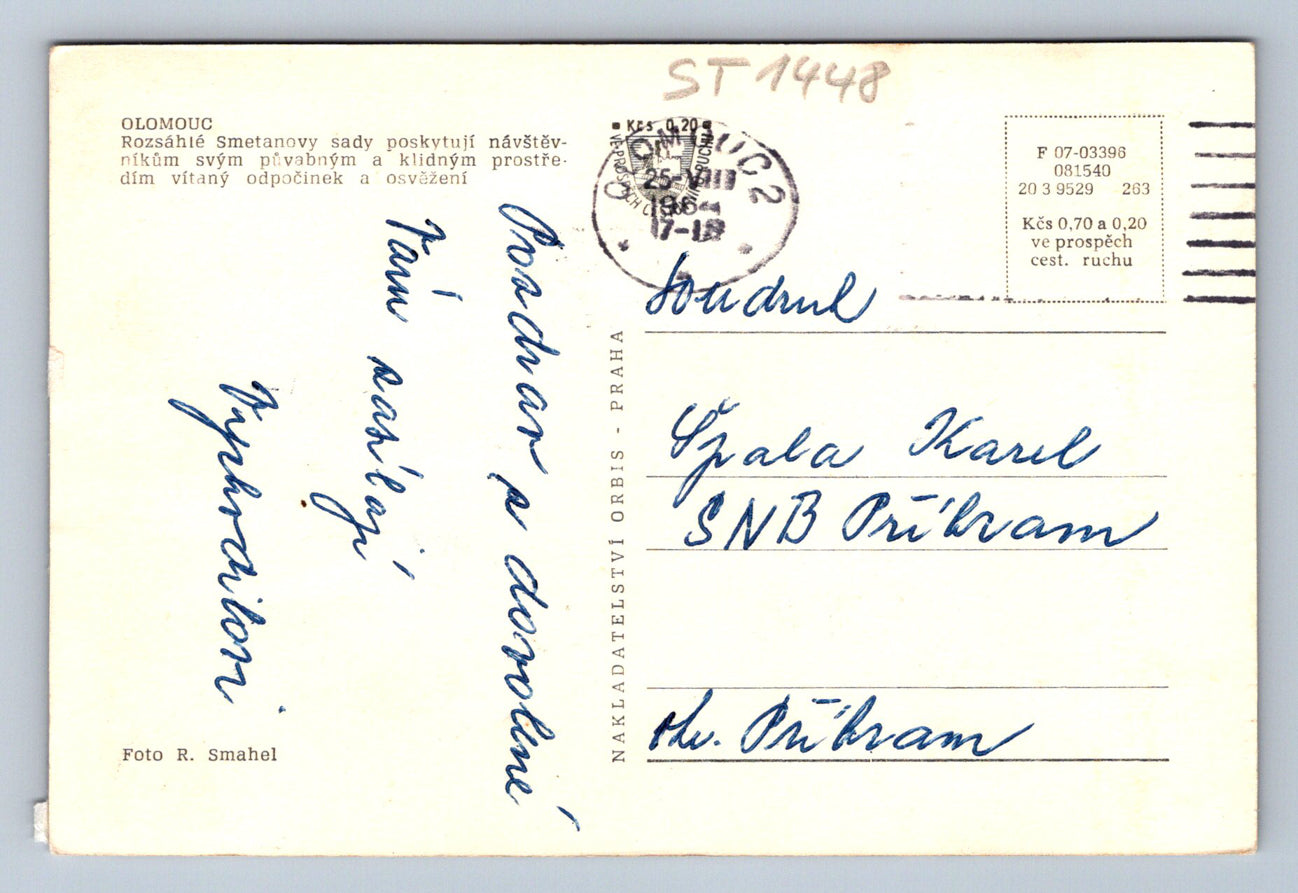 ST 1448
OLOMOUC
Rozsáhlé Smetanovy sady poskytují návštěv-
níkům svým půvabným a klidným prostře-
dím vítaný odpočinek a osvěžení
Kčs 0,20
OLOMOUC 2
25-VIII
1964
17-18
F 07-03396
081540
20 3 9529 263
Kčs 0,70 a 0,20
ve prospěch
cest. ruchu
Pozdrav s dovolené
Vám zasílají
Vyhrdilovi
Foto R. Smahel
NAKLADATELSTVÍ ORBIS - PRAHA
Soudruh
Špala Karel
SNB Příbram
okr. Příbram